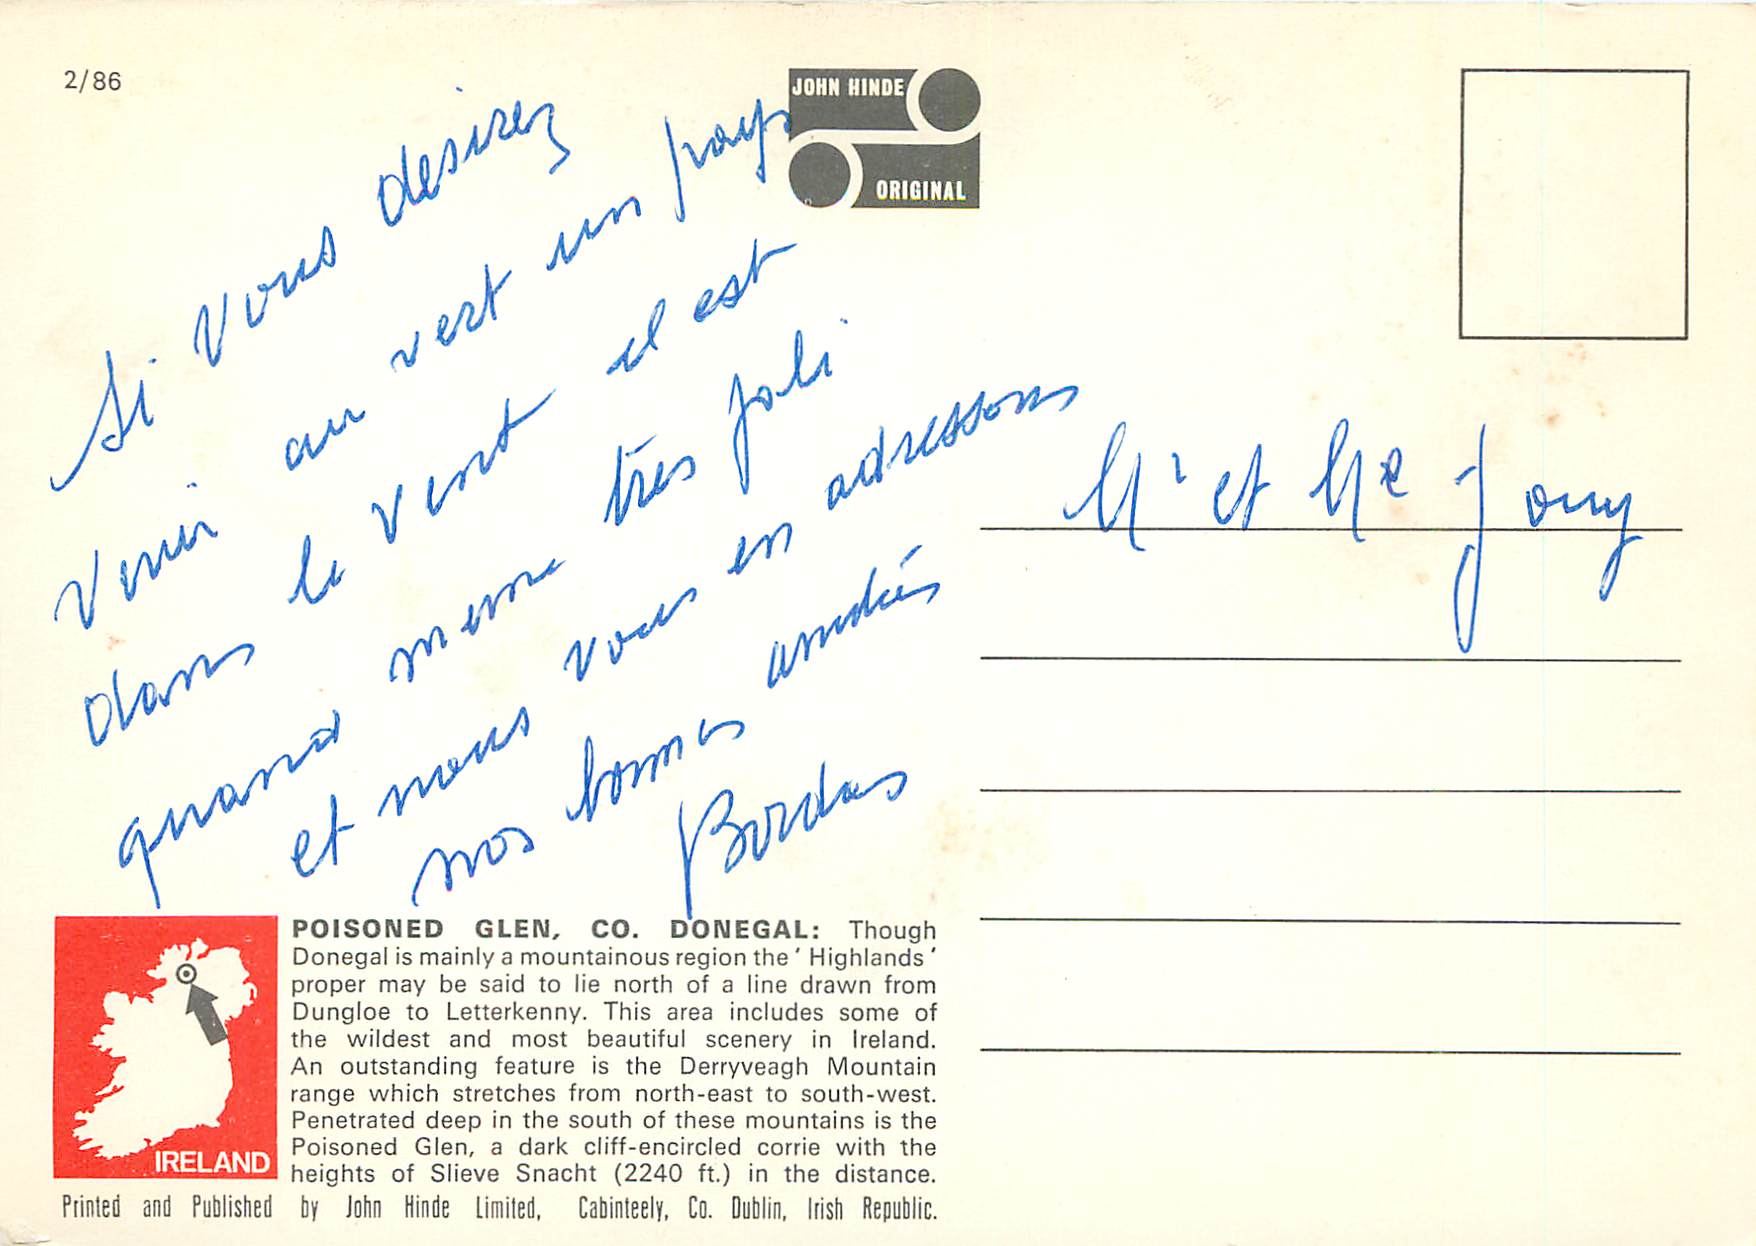 2/86
JOHN HINDE
ORIGINAL
Si vous desirez
venir au vert un pays
dans le vent il est
quand meme très joli
et nous vous en adressons
nos bonnes amitiés
Bordas
Mr et Me Jouy
POISONED GLEN, CO. DONEGAL: Though
Donegal is mainly a mountainous region the ' Highlands '
proper may be said to lie north of a line drawn from
Dungloe to Letterkenny. This area includes some of
the wildest and most beautiful scenery in Ireland.
An outstanding feature is the Derryveagh Mountain
range which stretches from north-east to south-west.
Penetrated deep in the south of these mountains is the
Poisoned Glen, a dark cliff-encircled corrie with the
heights of Slieve Snacht (2240 ft.) in the distance.
IRELAND
Printed and Published by John Hinde Limited, Cabinteely, Co. Dublin, Irish Republic.